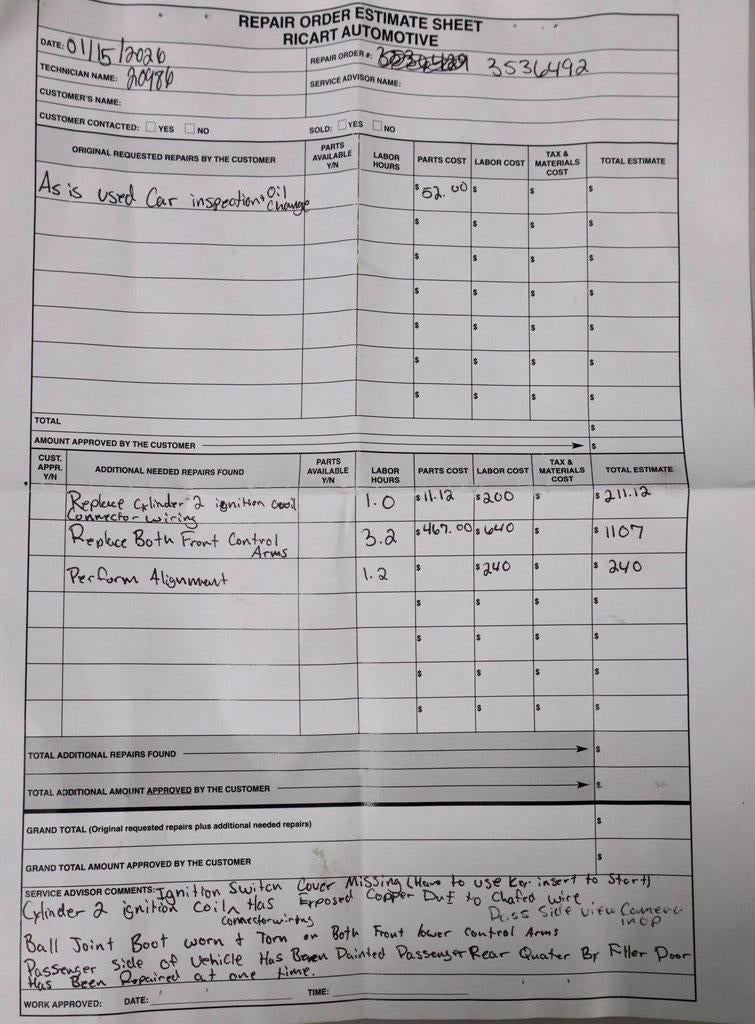 REPAIR ORDER ESTIMATE SHEET
RICART AUTOMOTIVE
DATE: 01/15/2026
REPAIR ORDER #: 3536492
TECHNICIAN NAME: 20986
SERVICE ADVISOR NAME:
CUSTOMER'S NAME:
CUSTOMER CONTACTED: YES NO
SOLD: YES NO
ORIGINAL REQUESTED REPAIRS BY THE CUSTOMER PARTS AVAILABLE Y/N LABOR HOURS PARTS COST LABOR COST TAX & MATERIALS COST TOTAL ESTIMATE
As is used Car inspection + Oil Change $52.00 $ $ $
$ $ $ $
$ $ $ $
$ $ $ $
$ $ $ $
$ $ $ $
$ $ $ $
TOTAL $
AMOUNT APPROVED BY THE CUSTOMER $
CUST. APPR. Y/N ADDITIONAL NEEDED REPAIRS FOUND PARTS AVAILABLE Y/N LABOR HOURS PARTS COST LABOR COST TAX & MATERIALS COST TOTAL ESTIMATE
Replace Cylinder 2 ignition coil 1.0 $11.12 $200 $ $211.12
Connector wiring
Replace Both Front Control 3.2 $467.00 $640 $ $1107
Arms
Perform Alignment 1.2 $ $240 $ $240
$ $ $ $
$ $ $ $
$ $ $ $
$ $ $ $
TOTAL ADDITIONAL REPAIRS FOUND $
TOTAL ADDITIONAL AMOUNT APPROVED BY THE CUSTOMER $
GRAND TOTAL (Original requested repairs plus additional needed repairs) $
GRAND TOTAL AMOUNT APPROVED BY THE CUSTOMER $
SERVICE ADVISOR COMMENTS: Ignition Switch Cover Missing (Have to use key insert to Start)
Cylinder 2 ignition coil Has Exposed Copper Due to Chafed wire.
connector wiring
Pass Side view Camera
inop
Ball Joint Boot worn & Torn on Both Front lower control Arms
Passenger Side of Vehicle Has Been Painted Passenger Rear Quater By Filler Door
Has Been Repaired at one time.
WORK APPROVED: DATE: TIME: